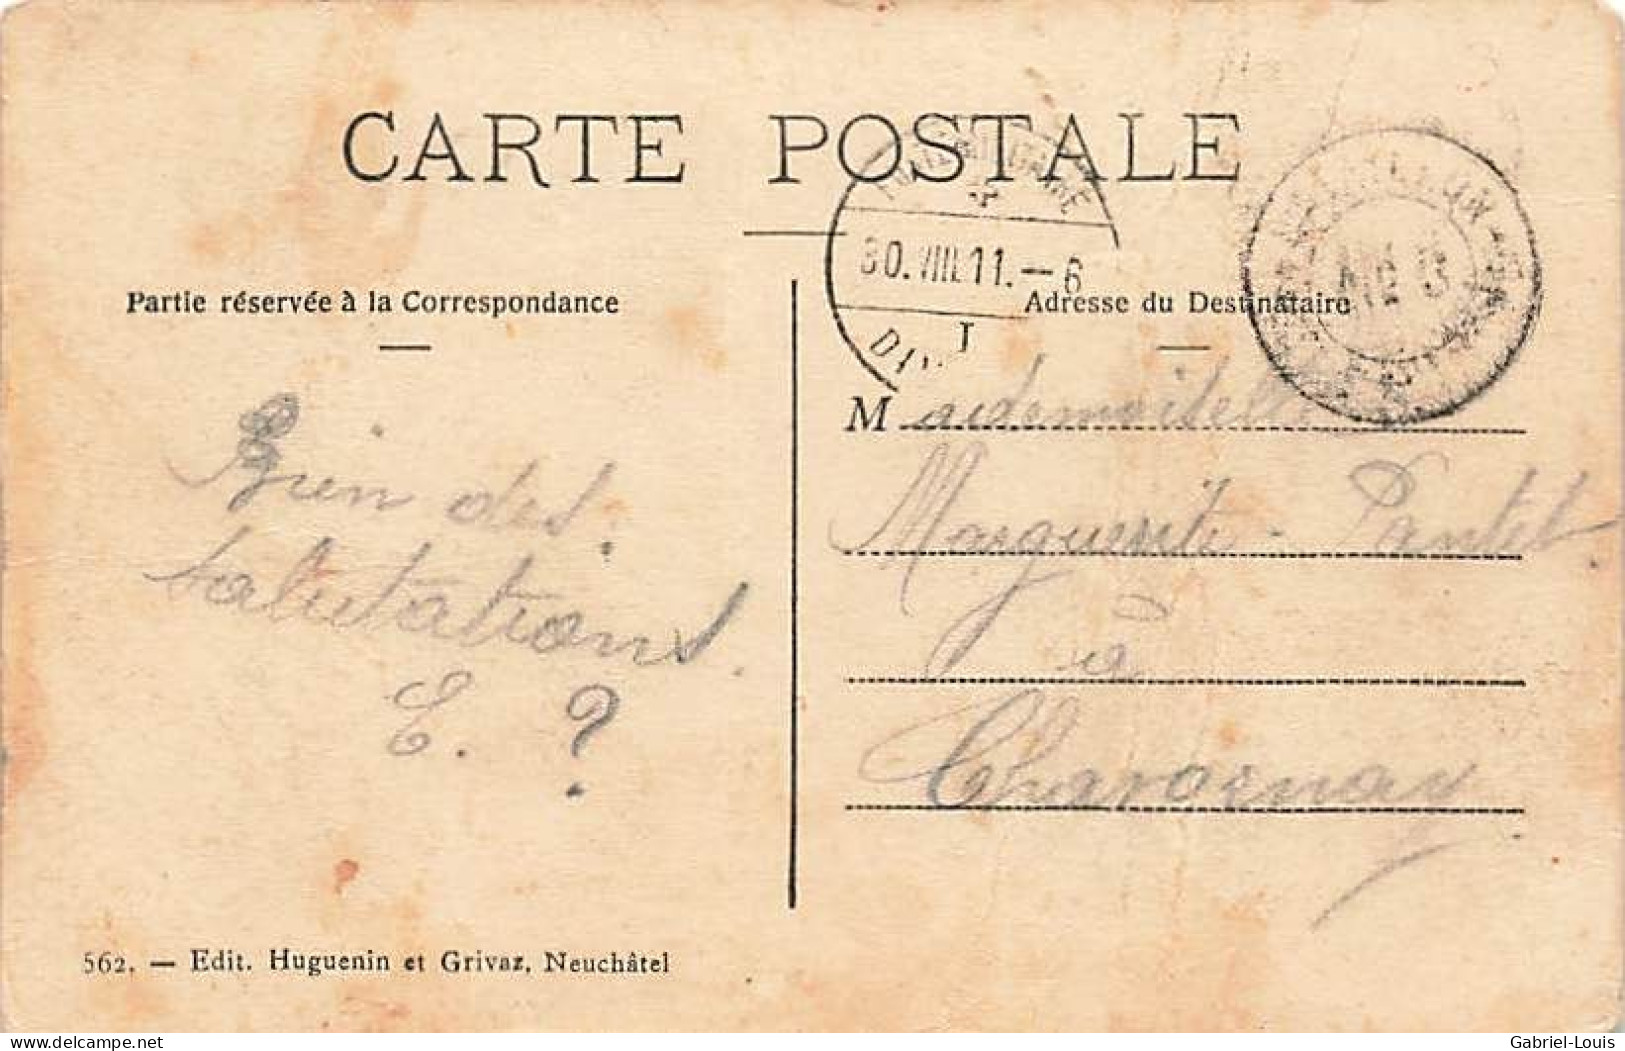 CARTE POSTALE
Partie réservée à la Correspondance
Adresse du Destinataire
30.VIII.11.–6
Bien des
salutations.
E. ?
Mademoiselle
Marguerite
à
562. — Edit. Huguenin et Grivaz, Neuchâtel
delcampe.net
Gabriel-Louis